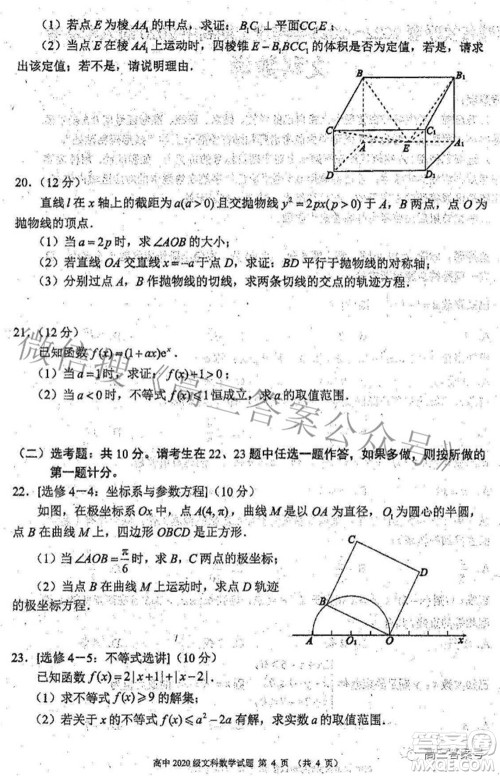 （1）若点E为棱AA₁的中点，求证：B₁C⊥平面CC₁E；
（2）当点E在棱AA₁上运动时，四棱锥E－B₁BCC₁的体积是否为定值，若是，请求
出该定值；若不是，请说明理由．
B
B₁
C
C₁
A
E
A₁
D
D₁
20．（12分）
直线l在x轴上的截距为a(a＞0)且交抛物线y²＝2px(p＞0)于A，B两点，点O为
抛物线的顶点．
（1）当a＝2p时，求∠AOB的大小；
（2）若直线OA交直线x＝−a于点D，求证：BD平行于抛物线的对称轴；
（3）分别过点A，B作抛物线的切线，求两条切线的交点的轨迹方程．
21．（12分）
已知函数f(x)＝(1＋ax)eˣ．
（1）当a＝1时，求证：f(x)＋1＞0；
（2）当a＜0时，不等式f(x)≤1恒成立，求a的取值范围．
微信搜《高三答案公众号》
（二）选考题：共10分。请考生在22、23题中任选一题作答，如果多做，则按所做的
第一题计分。
22．[选修4－4：坐标系与参数方程]（10分）
如图，在极坐标系Ox中，点A(4,π)，曲线M是以OA为直径，O₁为圆心的半圆，
点B在曲线M上，四边形OBCD是正方形．
（1）当∠AOB＝π/6时，求B，C两点的极坐标；
（2）当点B在曲线M上运动时，求点D轨迹
的极坐标方程．
C
D
B
A
O₁
O
x
23．[选修4－5：不等式选讲]（10分）
已知函数f(x)＝2|x＋1|＋|x－2|．
（1）求不等式f(x)≥9的解集；
（2）若关于x的不等式f(x)≤a²－2a有解，求实数a的取值范围．
高中2020级文科数学试题 第4页 （共4页）
高三答案号